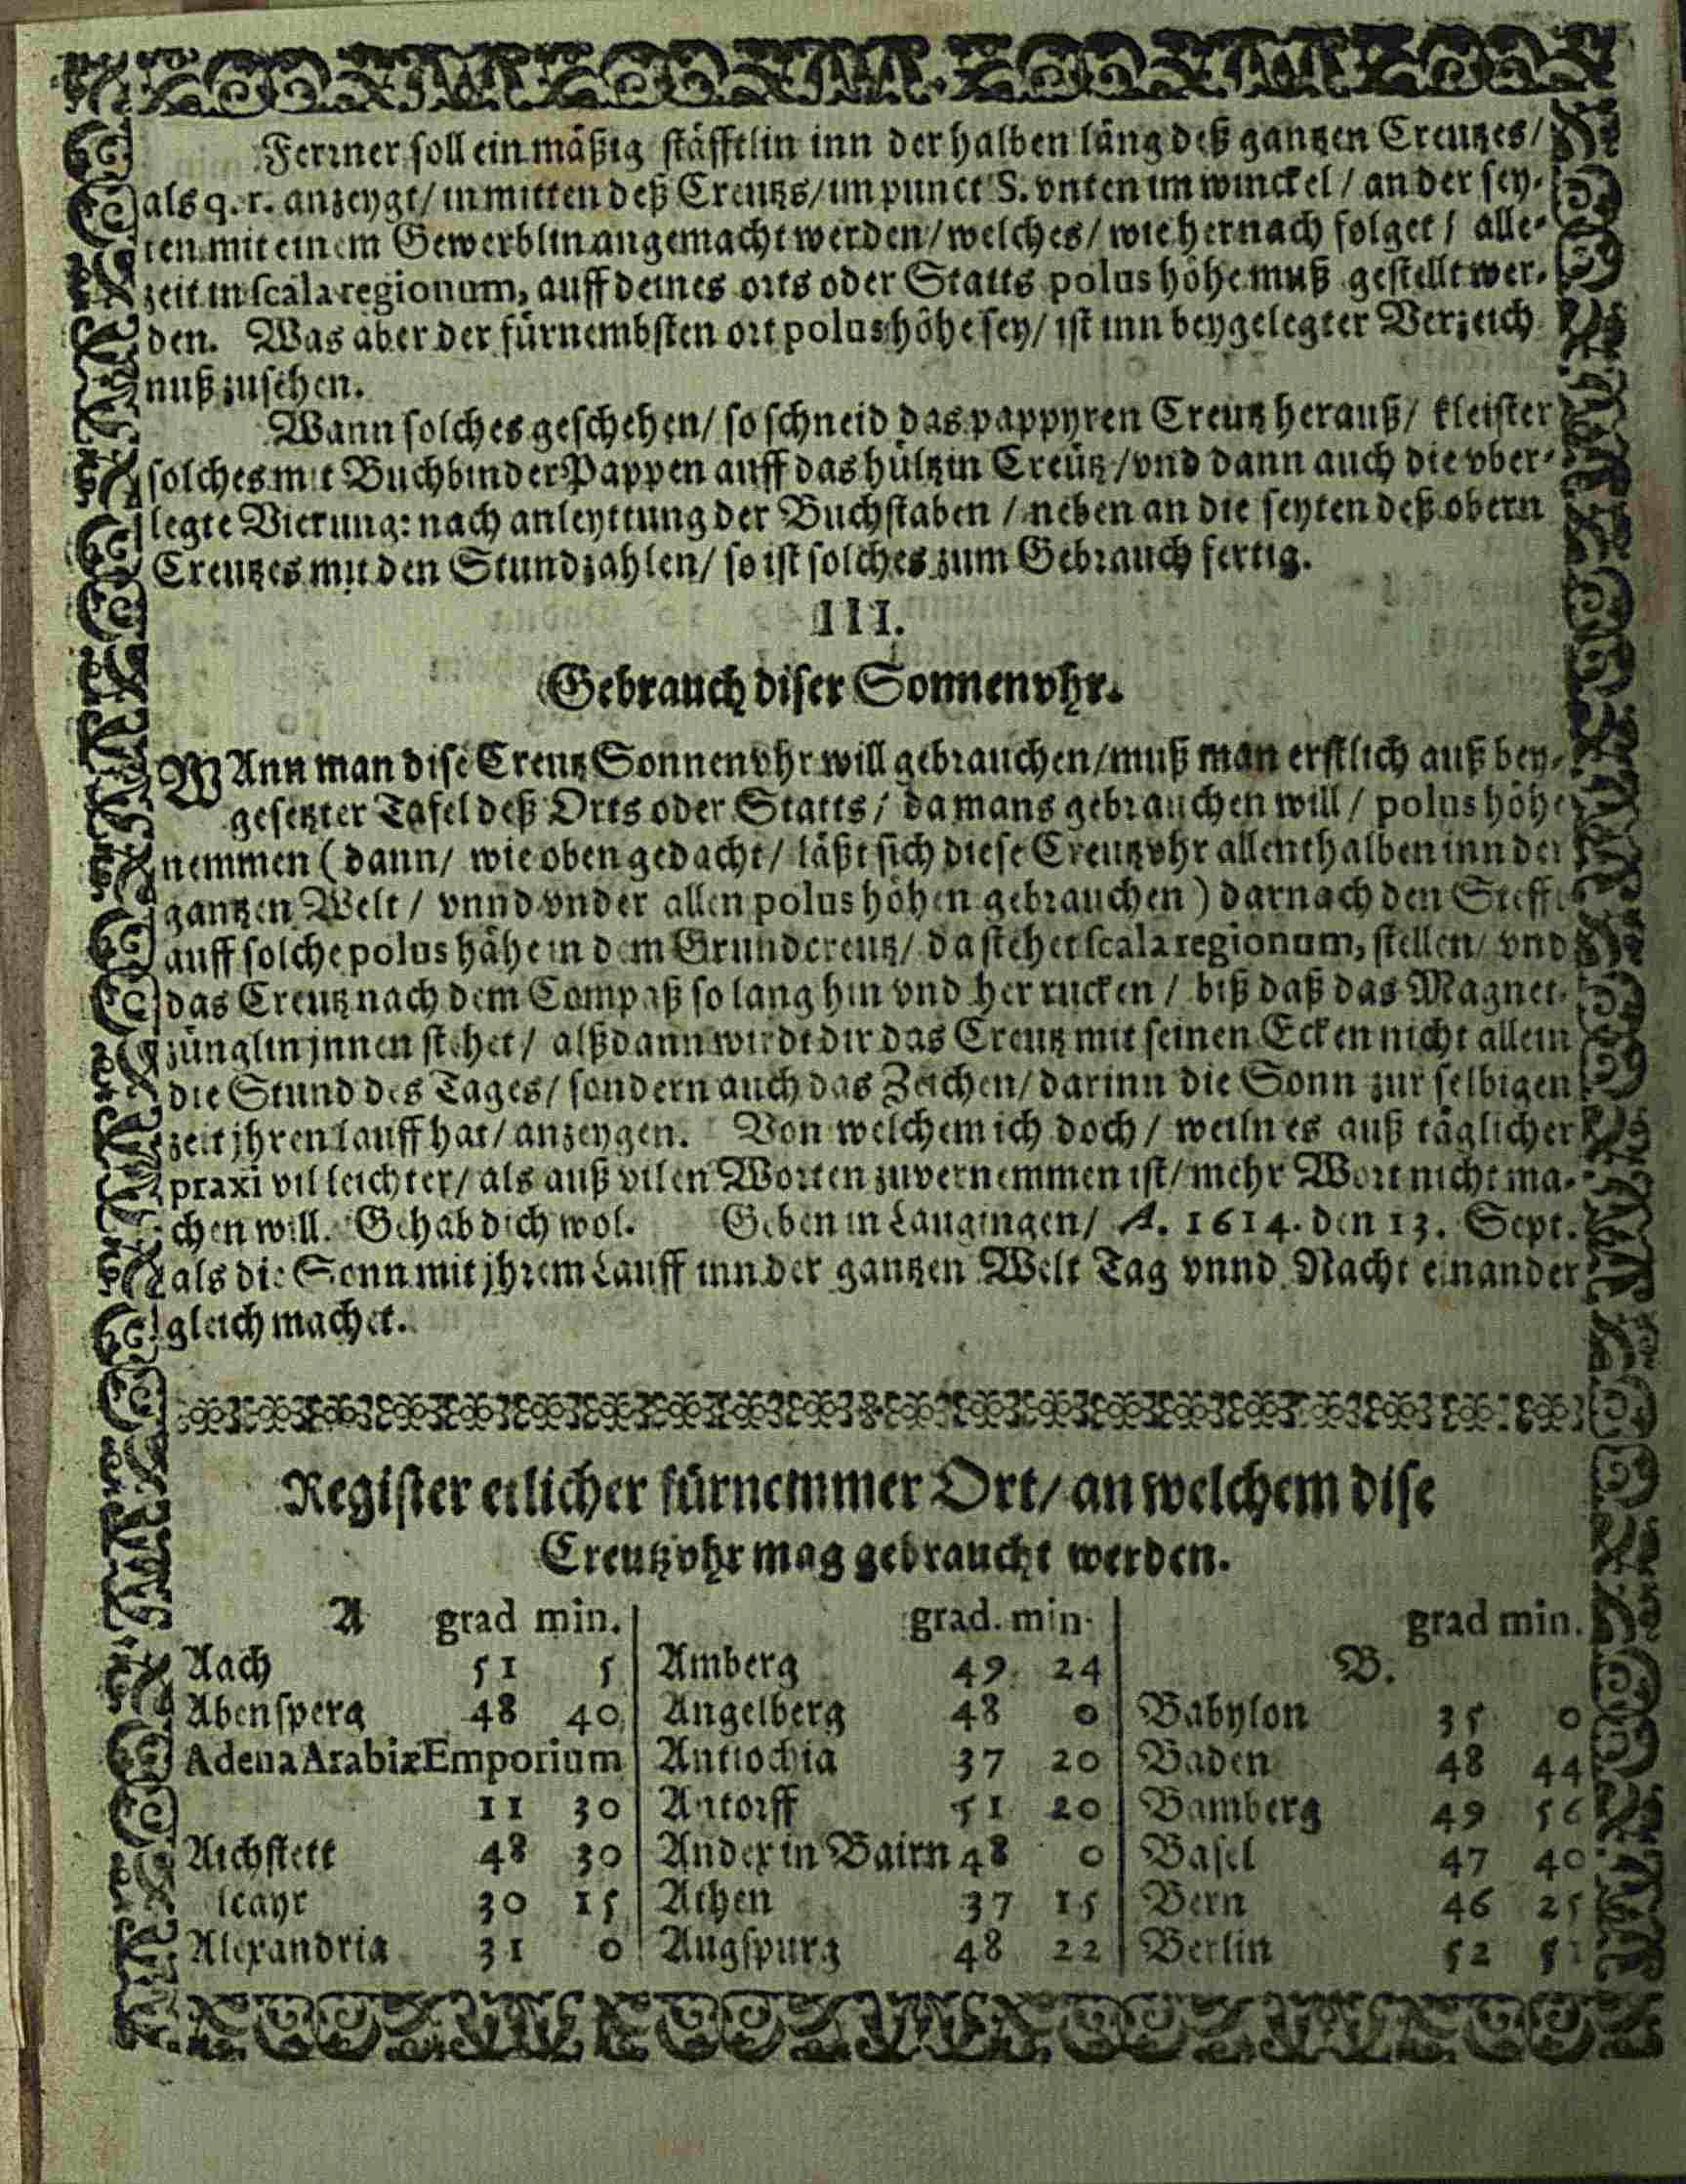 Ferrner soll ein mäßig stäfftlin inn der halben läng deß gantzen Creutzes/
als q. r. anzeygt/ in mitten deß Creutzs/ im punct S. vnten im winckel / an der sey-
ten mit einem Gewerblin angemacht werden/ welches/ wie hernach folget / alle-
zeit in scala regionum, auff deines orts oder Statts polus höhe muß gestellt wer-
den. Was aber der fürnembsten ort polus höhe sey/ ist inn beygelegter Verzeich
nuß zusehen.
Wann solches geschehen/ so schneid das pappyren Creutz herauß/ kleister
solches mit Buchbinder Pappen auff das hültzin Creütz /vnd dann auch die vber-
legte Vierung: nach anleyttung der Buchstaben / neben an die seyten deß obern
Creutzes mit den Stundzahlen/ so ist solches zum Gebrauch fertig.
III.
Gebrauch diser Sonnenvhr.
WAnn man dise Creutz Sonnenvhr will gebrauchen/muß man erstlich auß bey-
gesetzter Tafel deß Orts oder Statts / da mans gebrauchen will / polus höhe
nemmen ( dann/ wie oben gedacht/ läßt sich diese Creutzvhr allenthalben inn der
gantzen Welt / vnnd vnder allen polus höhen gebrauchen ) darnach den Stefft
auff solche polus hähe in dem Grundcreutz/ da stehet scala regionum, stellen/ vnd
das Creutz nach dem Compaß so lang hin vnd her rucken / biß daß das Magnet-
zünglin jnnen stehet / alßdann wirdt dir das Creutz mit seinen Ecken nicht allein
die Stund des Tages/ sondern auch das Zeichen/ darinn die Sonn zur selbigen
zeit jhren lauff hat/ anzeygen. Von welchem ich doch / weiln es auß täglicher
praxi vil leichter/ als auß vilen Worten zuvernemmen ist/ mehr Wort nicht ma-
chen will. Gehab dich wol. Geben in Laugingen/ A. 1614. den 13. Sept.
als die Sonn mit jhrem Lauff inn der gantzen Welt Tag vnnd Nacht einander
gleich machet.
Register etlicher fürnemmer Ort/ an welchem dise
Creutzvhr mag gebraucht werden.
A grad min.
Aach 51 5
Abensperg 48 40
Adena Arabiæ Emporium
11 30
Aichstett 48 30
lcayr 30 15
Alexandria 31 0
grad. min.
Amberg 49 24
Angelberg 48 0
Antiochia 37 20
Antorff 51 20
Andex in Bairn 48 0
Athen 37 15
Augspurg 48 22
grad min.
B.
Babylon 35 0
Baden 48 44
Bamberg 49 56
Basel 47 40
Bern 46 25
Berlin 52